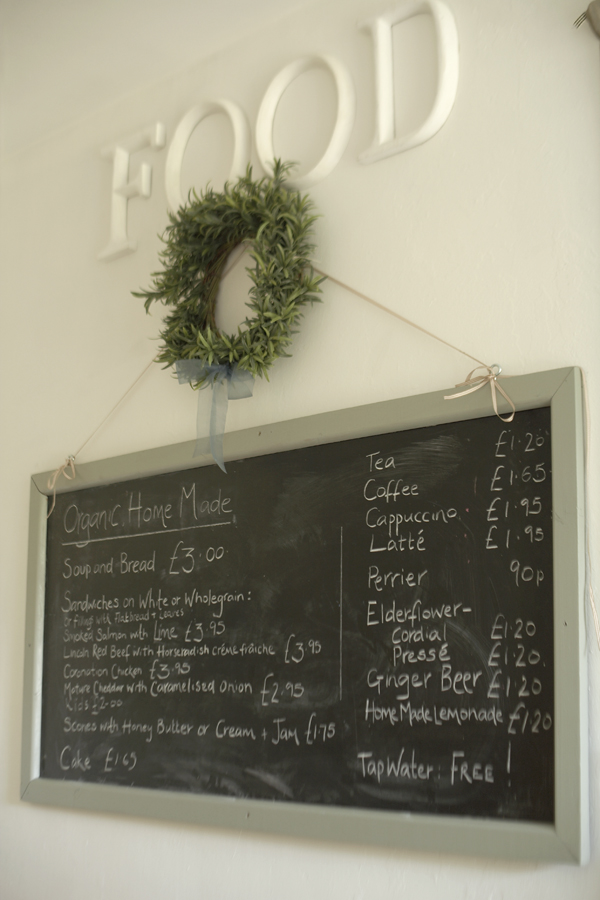 FOOD
Organic Home Made
Soup and Bread £3.00
Sandwiches on White or Wholegrain:
Or Filling with Flatbread + Leaves
Smoked Salmon with Lime £3.95
Lincoln Red Beef with Horseradish crème fraîche £3.95
Coronation Chicken £3.95
Mature Cheddar with Caramelised Onion £2.95
Kids £2.00
Scones with Honey Butter or Cream + Jam £1.75
Cake £1.65
Tea £1.20
Coffee £1.65
Cappuccino £1.95
Latté £1.95
Perrier 90p
Elderflower-
Cordial £1.20
Pressé £1.20
Ginger Beer £1.20
Home Made Lemonade £1.20
Tap Water: FREE!